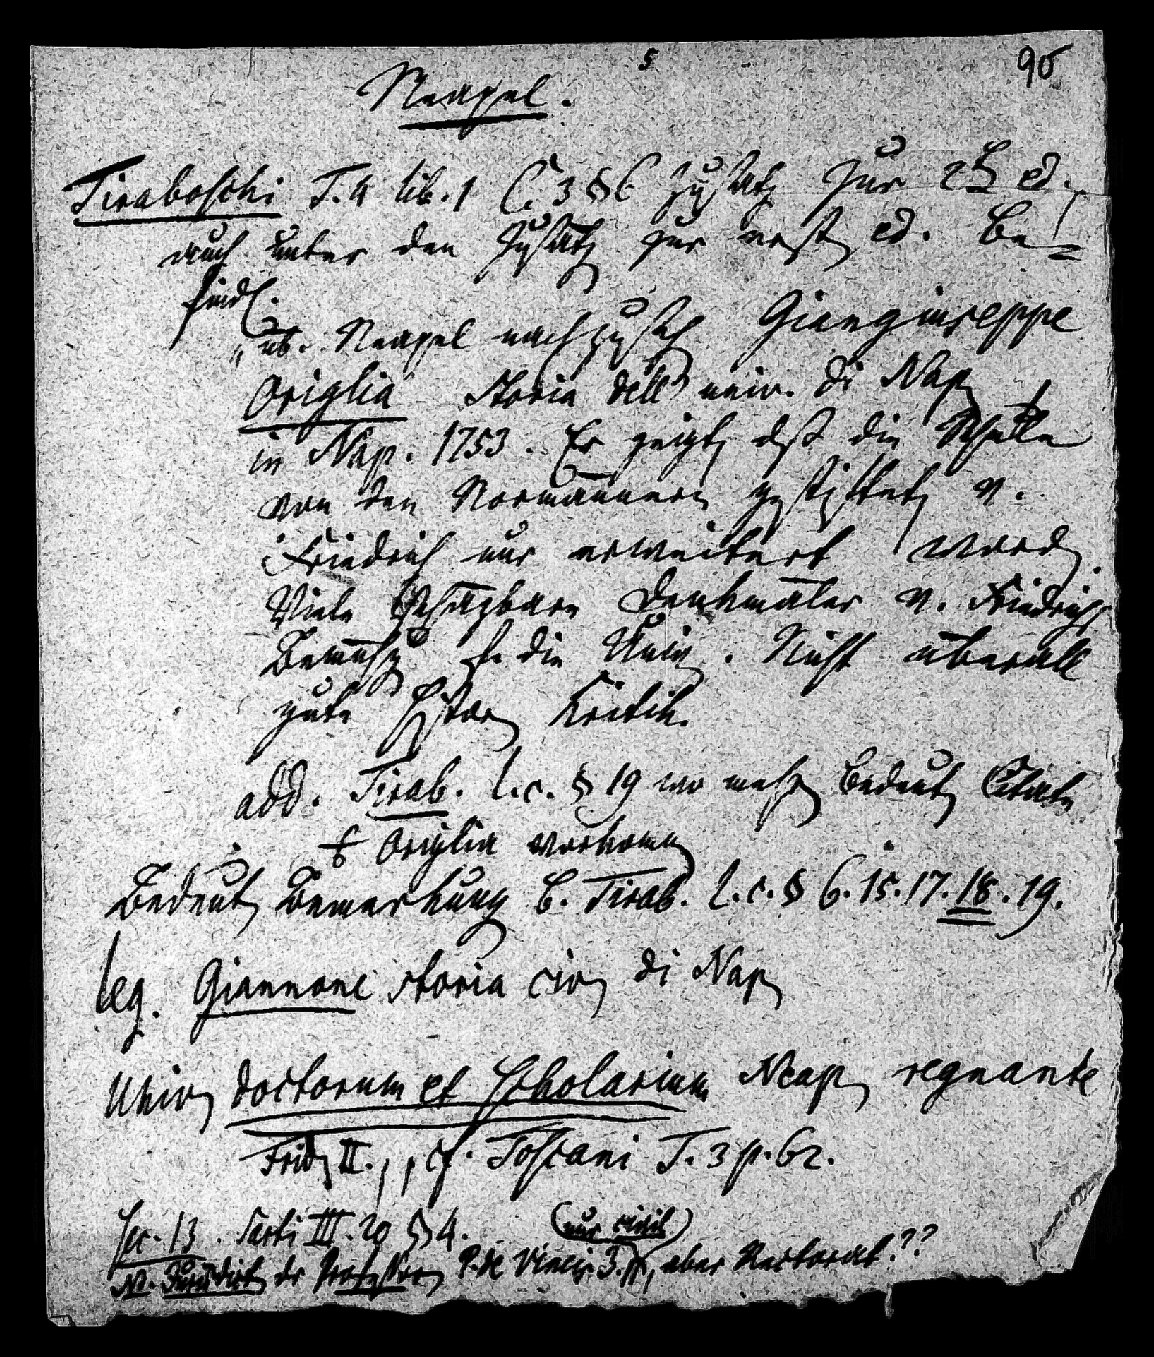 5 90
Neapel.
Tiraboschi T. 4 lib. 1 C. 3 § 6 Zusatz zur 2t ed.,
auch unter den Zusätz zur erst ed. be=
findl.
„üb. Neapel nachzuseh Giangiuseppe
Origlia storia dell univ. di Nap
in Nap. 1753. Er zeigt daß die Schule
von den Normannern gestiftet, v.
Friedrich nur erweitert word.
Viele schäzbare Denkmäler v. Friedrichs
Bemüh f. die Univ. Nicht überall
gute histor Kritik.
add. Tirab. l. c. § 19 wo mehr bedeut Citate
Origlia vorkomm
Bedeut Bemerkung b. Tirab. l. c. § 6. 15. 17. 18. 19.
leg. Giannone storia civ di Nap
Univ doctorum et scholarium Neap regnante
Frid II., cf. Toscani T. 3 p. 62.
Sec. 13. Sarti III. 20 § 4. (nur civil)
N. Jurisdict der Professoren P. de Vineis 3. aber Rectorat.??